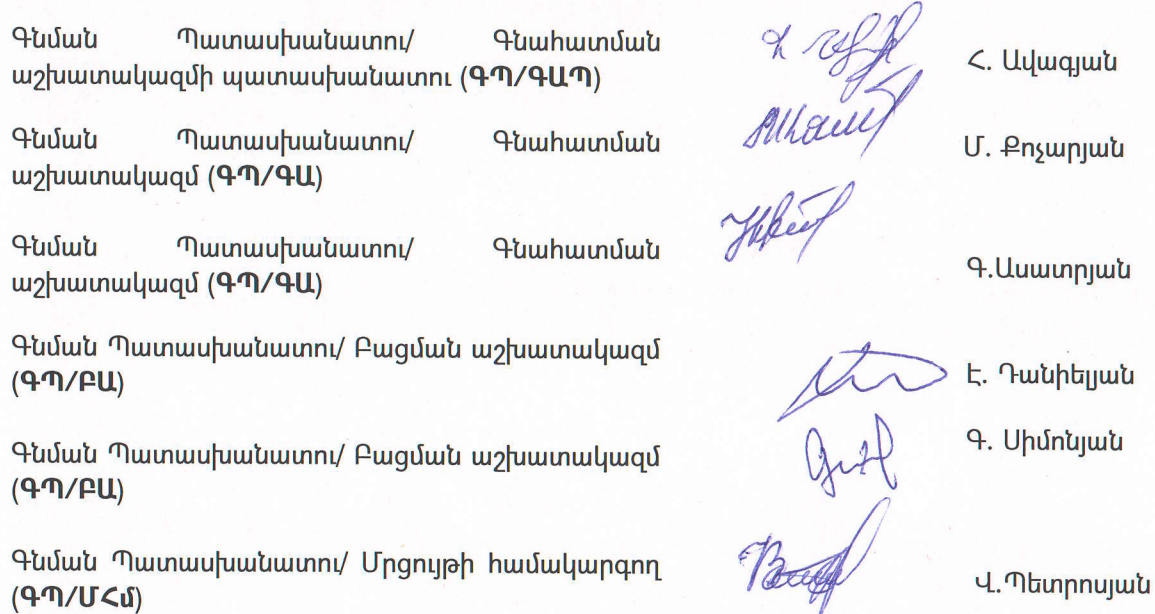 Գնման Պատասխանատու/ Գնահատման
աշխատակազմի պատասխանատու (ԳՊ/ԳԱՊ)
Հ. Ավագյան
Գնման Պատասխանատու/ Գնահատման
աշխատակազմ (ԳՊ/ԳԱ)
Մ. Քոչարյան
Գնման Պատասխանատու/ Գնահատման
աշխատակազմ (ԳՊ/ԳԱ)
Գ.Ասատրյան
Գնման Պատասխանատու/ Բացման աշխատակազմ
(ԳՊ/ԲԱ)
Է. Դանիելյան
Գնման Պատասխանատու/ Բացման աշխատակազմ
(ԳՊ/ԲԱ)
Գ. Սիմոնյան
Գնման Պատասխանատու/ Մրցույթի համակարգող
(ԳՊ/ՄՀմ)
Վ.Պետրոսյան